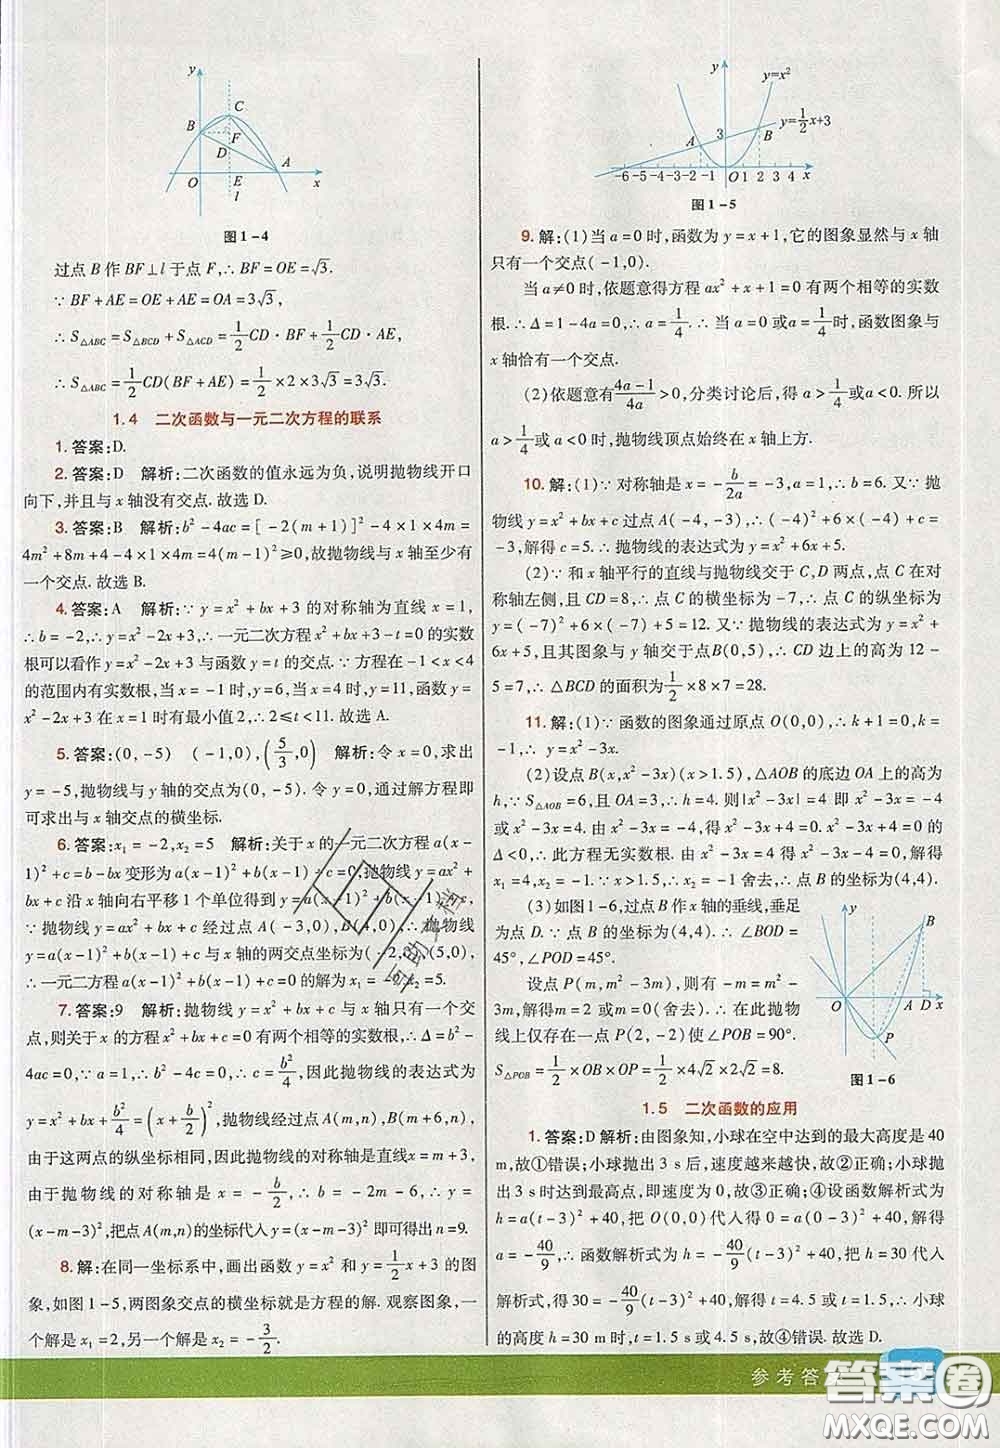 y
C
B
F
D
A
O
E
x
l
图1-4
过点 B 作 BF⊥l 于点 F,∴BF=OE=√3.
∵BF+AE=OE+AE=OA=3√3,
∴S△ABC=S△BCD+S△ACD=1/2CD·BF+1/2CD·AE,
∴S△ABC=1/2CD(BF+AE)=1/2×2×3√3=3√3.
1.4 二次函数与一元二次方程的联系
1.答案:D.
2.答案:D 解析:二次函数的值永远为负,说明抛物线开口
向下,并且与 x 轴没有交点.故选 D.
3.答案:B 解析:b²-4ac=[-2(m+1)]²-4×1×4m=
4m²+8m+4-4×1×4m=4(m-1)²≥0,故抛物线与 x 轴至少有
一个交点.故选 B.
4.答案:A 解析:∵y=x²+bx+3 的对称轴为直线 x=1,
∴b=-2,∴y=x²-2x+3,∴一元二次方程 x²+bx+3-t=0 的实数
根可以看作 y=x²-2x+3 与函数 y=t 的交点.∵方程在-1<x<4
的范围内有实数根,当 x=-1 时,y=6,当 x=4 时,y=11,函数 y=
x²-2x+3 在 x=1 时有最小值 2,∴2≤t<11.故选 A.
5.答案:(0,-5) (-1,0),(5/3,0) 解析:令 x=0,求出
y=-5,抛物线与 y 轴的交点为(0,-5).令 y=0,通过解方程即
可求出与 x 轴交点的横坐标.
6.答案:x₁=-2,x₂=5 解析:关于 x 的一元二次方程 a(x-
1)²+c=b-bx 变形为 a(x-1)²+b(x-1)+c=0,抛物线 y=ax²+
bx+c 沿 x 轴向右平移 1 个单位得到 y=a(x-1)²+b(x-1)+c,
∵抛物线 y=ax²+bx+c 经过点 A(-3,0),B(4,0),∴抛物线
y=a(x-1)²+b(x-1)+c 与 x 轴的两交点坐标为(-2,0),(5,0),
∴一元二次方程 a(x-1)²+b(x-1)+c=0 的解为 x₁=-2,x₂=5.
7.答案:9 解析:抛物线 y=x²+bx+c 与 x 轴只有一个交
点,则关于 x 的方程 x²+bx+c=0 有两个相等的实数根,∴Δ=b²-
4ac=0,∴b²-4c=0,∴c=b²/4,因此抛物线的表达式为
y=x²+bx+b²/4=(x+b/2)²,抛物线过点 A(m,n),B(m+6,n),
由于这两点的纵坐标相同,因此抛物线的对称轴是直线 x=m+3,
由于抛物线的对称轴是 x=-b/2,∴-b/2=m+3,∴y=
(x-m-3)²,把点 A(m,n)的坐标代入 y=(x-m-3)²即可得出 n=9.
8.解:在同一坐标系中,画出函数 y=x² 和 y=1/2x+3 的图
象,如图 1-5,两图象交点的横坐标就是方程的解.观察图象,一
个解是 x₁=2,另一个解是 x₂=-3/2.
y
y=x²
y=1/2x+3
3
A
B
-6 -5 -4 -3 -2 -1 O 1 2 3 4 x
图1-5
9.解:(1)当 a=0 时,函数为 y=x+1,它的图象显然与 x 轴
只有一个交点(-1,0).
当 a≠0 时,依题意得方程 ax²+x+1=0 有两个相等的实数
根.∴Δ=1-4a=0,∴a=1/4.∴当 a=0 或 a=1/4时,函数图象与
x 轴恰有一个交点.
(2)依题意有(4a-1)/4a>0,分类讨论后,得 a>1/4或 a<0.所以
a>1/4或 a<0 时,抛物线顶点始终在 x 轴上方.
10.解:(1)∵对称轴是 x=-b/2a=-3,a=1,∴b=6.又∵抛
物线 y=x²+bx+c 过点 A(-4,-3),∴(-4)²+6×(-4)+c=
-3,解得 c=5.∴抛物线的表达式为 y=x²+6x+5.
(2)∵和 x 轴平行的直线与抛物线交于 C,D 两点,点 C 在对
称轴左侧,且 CD=8,∴点 C 的横坐标为-7,∴点 C 的纵坐标为
y=(-7)²+6×(-7)+5=12.又∵抛物线的表达式为 y=x²+
6x+5,且其图象与 y 轴交于点 B(0,5),∴CD 边上的高为 12-
5=7,∴△BCD 的面积为1/2×8×7=28.
11.解:(1)∵函数的图象通过原点 O(0,0),∴k+1=0,k=
-1,∴y=x²-3x.
(2)设点 B(x,x²-3x)(x>1.5),△AOB 的底边 OA 上的高为
h,∵S△AOB=6,且 OA=3,∴h=4.则|x²-3x|=4 即 x²-3x=-4
或 x²-3x=4.由 x²-3x=-4 得 x²-3x+4=0,
Δ<0,∴此方程无实数根.由 x²-3x=4 得 x²-3x-4=0,解得
x₁=4,x₂=-1.∵x>1.5,∴x=-1 舍去,∴点 B 的坐标为(4,4).
(3)如图 1-6,过点 B 作 x 轴的垂线,垂足
为点 D.∵点 B 的坐标为(4,4),∴∠BOD=
45°,∠POD=45°.
设点 P(m,m²-3m),则有-m=m²-
3m,解得 m=2 或 m=0(舍去),∴在此抛物
线上仅存在一点 P(2,-2)使∠POB=90°.
S△POB=1/2×OB×OP=1/2×4√2×2√2=8.
y
B
O
A D x
P
图1-6
1.5 二次函数的应用
1.答案:D 解析:由图象知,小球在空中达到的最大高度是 40
m,故①错误;小球抛出 3 s 后,速度越来越快,故②正确;小球抛
出 3 s 时达到最高点,即速度为 0,故③正确;④设函数解析式为
h=a(t-3)²+40,把 O(0,0)代入得 0=a(0-3)²+40,解得
a=-40/9,∴函数解析式为 h=-40/9(t-3)²+40,把 h=30 代入
解析式,得 30=-40/9(t-3)²+40,解得 t=4.5 或 t=1.5,∴小球
的高度 h=30 m 时,t=1.5 或 4.5 s,故④错误.故选 D.
参考答
答案卷
MXQE.COM